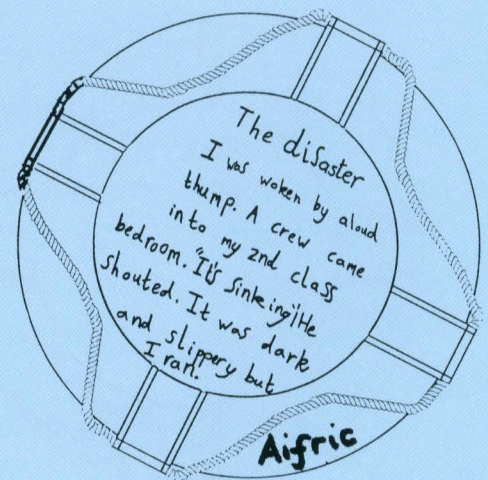 The disaster
I was woken by aloud
thump. A crew came
into my 2nd class
bedroom. "It's sinkeing"!He
shouted. It was dark
and slippery but
I ran.
Aifric